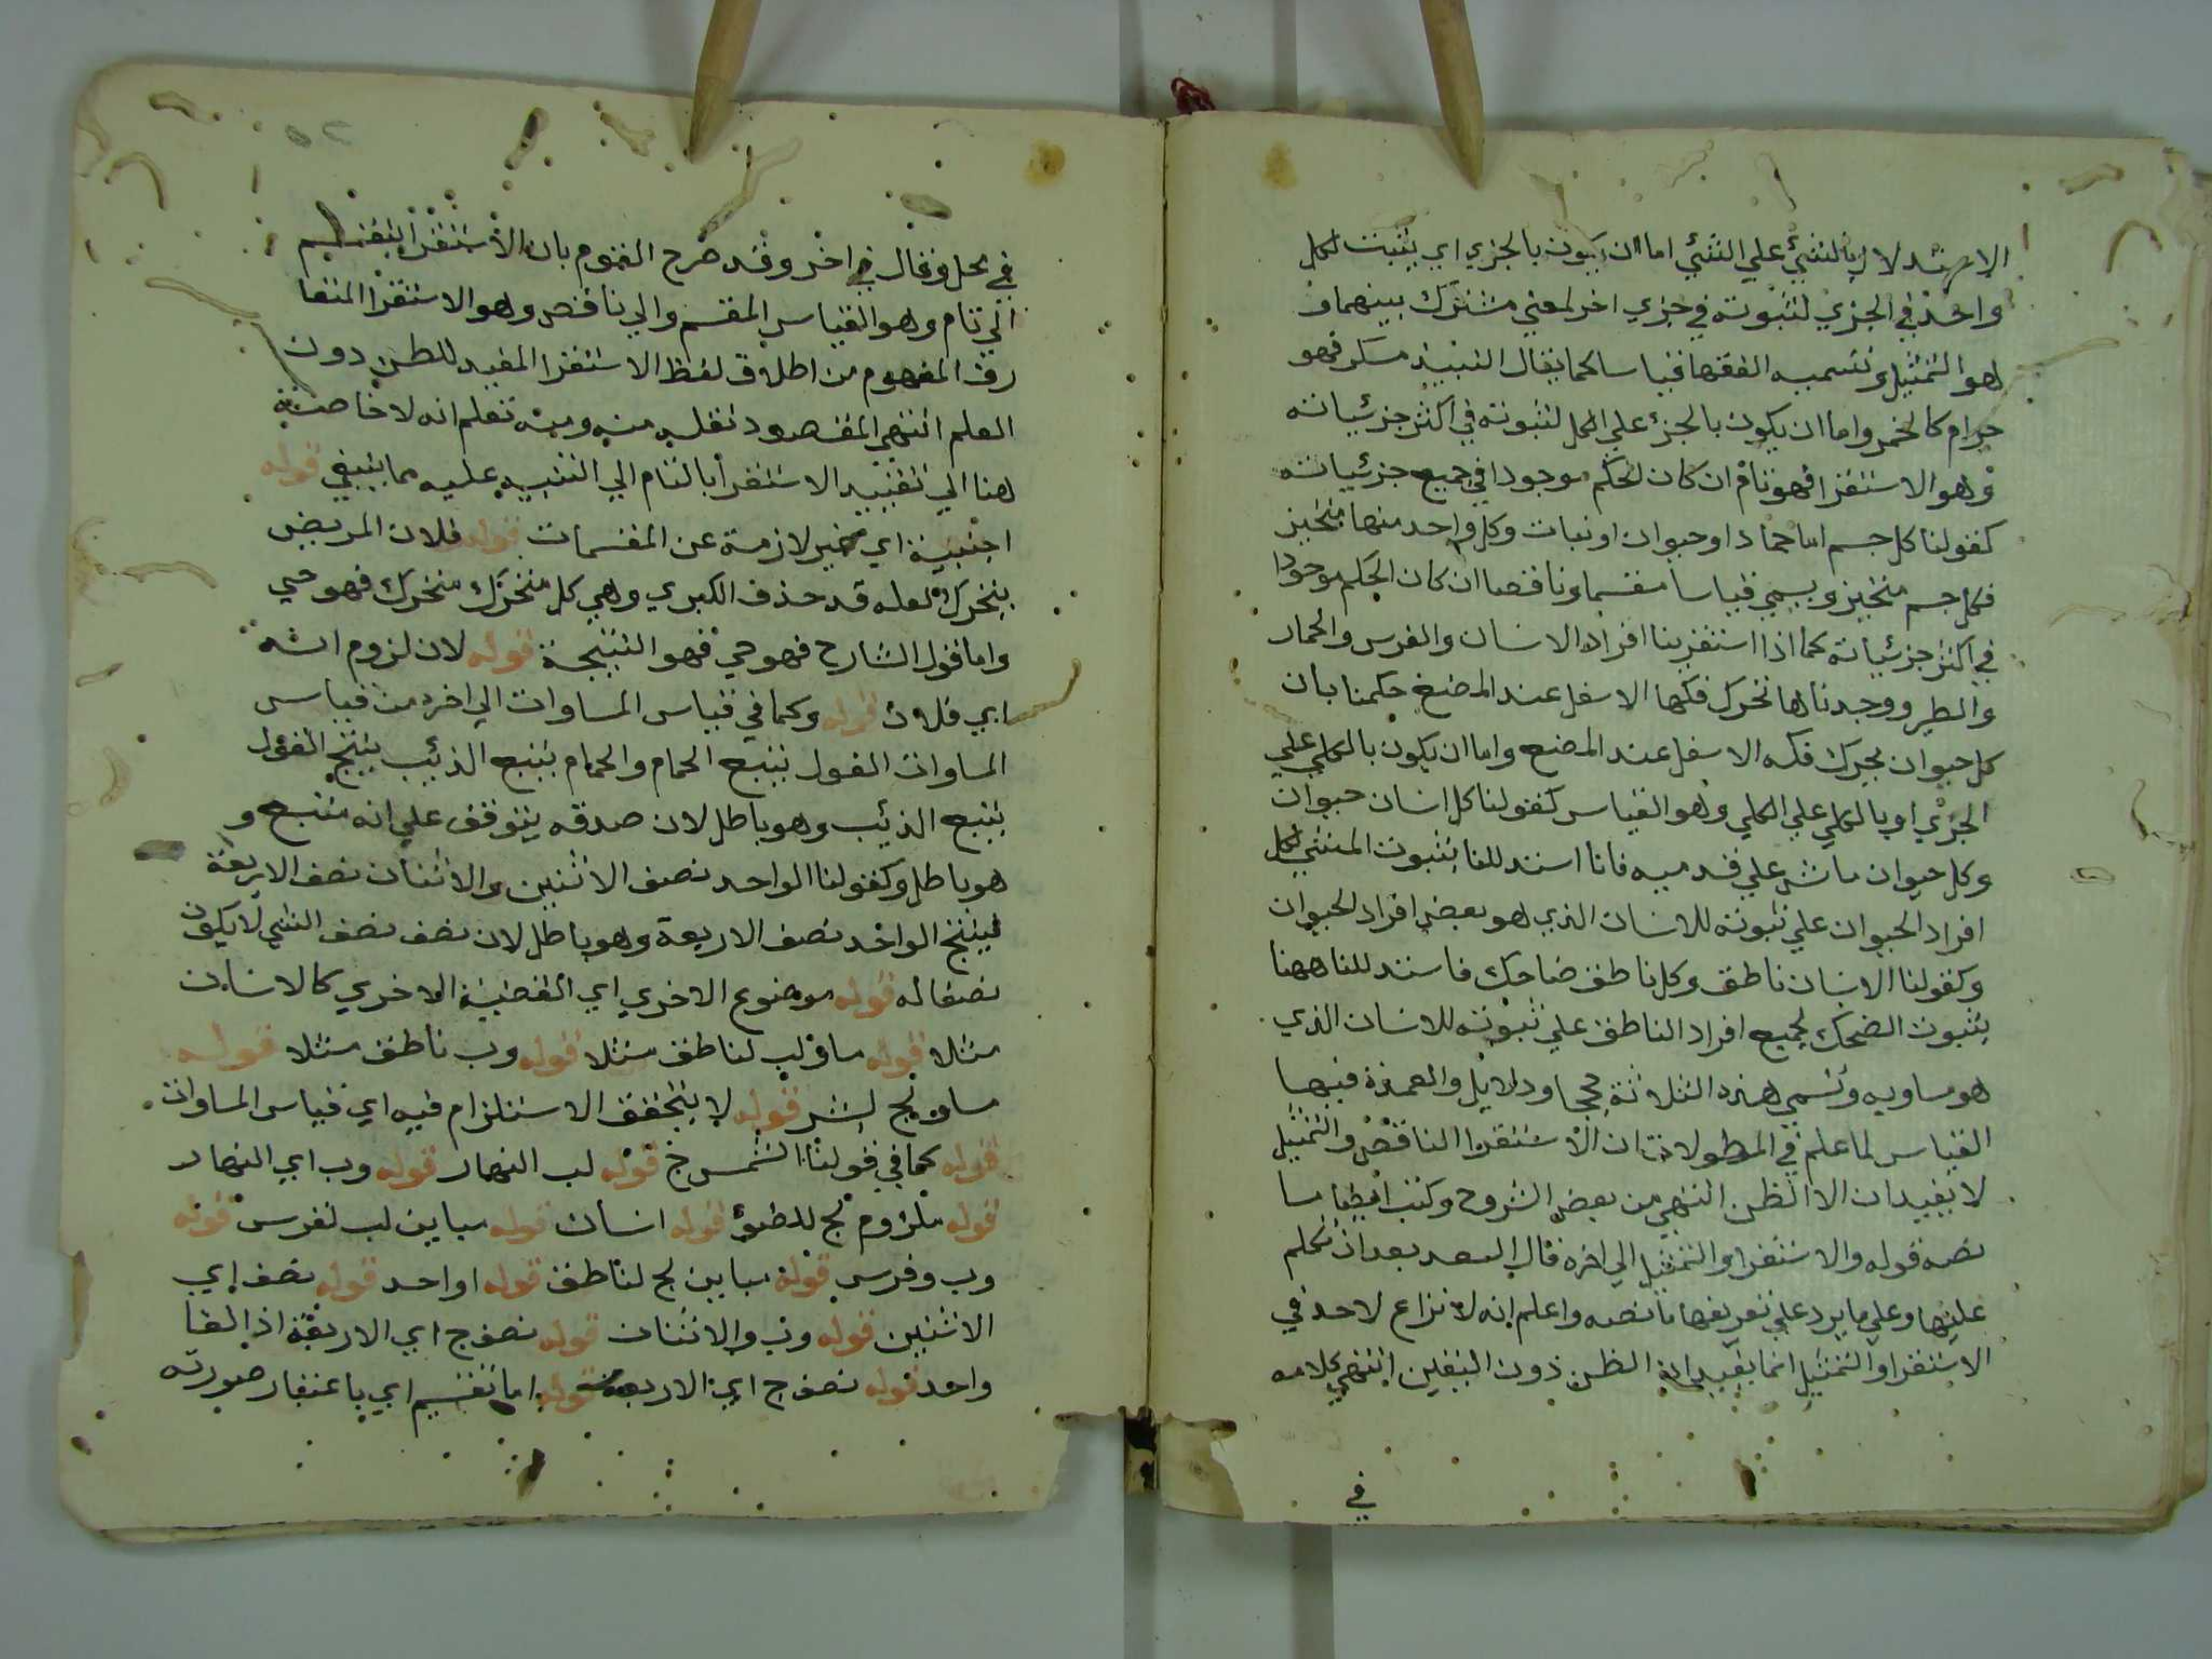 الاستدلال بالشيئ علي الشئي اما ان يكون بالجزي اي يثبت لكل
واحد في الجزي لثبوته في جزي اخر لمعني مشترك بينهما و
هو التمثيل وتسميه الفقها قياسا كما يقال النبيذ مسكر فهو
حرام كالخمر واما ان يكون بالجزء علي الكل لثبوته في اكثر جزئياته
وهو الاستقرا فهو تام ان كان الحكم موجودا في جميع جزئياته
كقولنا كل جسم اما جماد او حيوان او نبات وكل واحد منها متحيز
فكل جسم متحيز ويسمي قياسا مقسما وناقصا ان كان الحكم موجودا
في اكثر جزئياته كما اذا استقرينا افراد الانسان والفرس والحمار
والطير ووجدناها تحرك فكها الاسفل عند المضغ حكمنا بان
كل حيوان يحرك فكه الاسفل عند المضغ واما ان يكون بالكلي علي
الجزي او بالكلي علي الكلي وهو القياس كقولنا كل انسان حيوان
وكل حيوان ماش علي قدميه فانا استدللنا بثبوت المشي لكل
افراد الحيوان علي ثبوته للانسان الذي هو بعض افراد الحيوان
وكقولنا الانسان ناطق وكل ناطق ضاحك فاستدللنا ههنا
بثبوت الضحك لجميع افراد الناطق علي ثبوته للانسان الذي
هو مساويه وتسمي هذه الثلاثة حججا ودلايل والعمدة فيها
القياس لما علم في المطولات ان الاستقرا الناقص والتمثيل
لا يفيدان الا الظن انتهي من بعض الشروح وكتب ايضا ما
نصه قوله والاستقرا والتمثيل الي اخره قال السعد بعد ان تكلم
عليها وعلي ما يرد علي تعريفها ما نصه واعلم انه لا نزاع لاحد في
الاستقرا والتمثيل انما يفيدان الظن دون اليقين انتهي كلامه
في
٥٢
في محل وقال في اخر وقد صرح القوم بان الاستقرا ينقسم
الي تام وهو القياس المقسم والي ناقص وهو الاستقرا المتعا
رف المفهوم من اطلاق لفظ الاستقرا المفيد للظن دون
العلم انتهي المقصود نقله منه ومنه تعلم انه لا خاصية
هنا الي تقييد الاستقرا بالتام الي التنبيه عليه مما ينبغي قوله
اجنبية اي غير لازمة عن المقسمات قوله فلان المريض
يتحرك لعله قد حذف الكبري وهي كل متحرك متحرك فهو حي
واما قول الشارح فهو حي فهو النتيجة قوله لان لزوم انه
اي فلان قوله وكما في قياس المساوات الي اخره من قياس
المساوات الفول يتبع الحمام والحمام يتبع الذئيب ينتج الفول
يتبع الذئيب وهو باطل لان صدقه يتوقف علي انه متبع و
هو باطل وكقولنا الواحد نصف الاثنين والاثنان نصف الاربعة
فينتج الواحد نصف الاربعة وهو باطل لان نصف نصف الشي لا يكون
نصفا له قوله موضوع الاخري اي القضية الاخري كالانسان
مثلا قوله مساو لب لناطق مثلا قوله وب ناطق مثلا قوله
مساو لج لبشر قوله لا يتحقق الاستلزام فيه اي قياس المساوات
قوله كما في قولنا الشمس خ قوله لب النهار قوله وب اي النهار
قوله ملزوم لج للضوئ قوله انسان قوله مباين لب لفرس قوله
وب وفرس قوله مباين لج لناطق قوله ا واحد قوله نصف اي
الاثنين قوله وب والاثنان قوله نصف ج اي الاربعة اذ الفا
واحد قوله نصف ج اي الاربعة قوله اما تقسيم اي باعتبار صورته